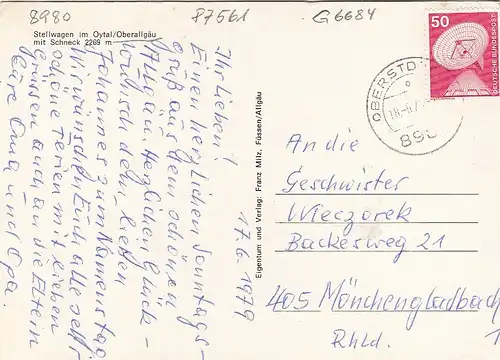 8980
87561
G 6684
Stellwagen im Oytal/Oberallgäu
mit Schneck 2269 m
17.6.1979
Ihr Lieben!
Einen herzlichen Sonntags-
gruß aus dem schönen
Allgäu. Herzlichen Glück-
wunsch dem lieben
Johannes zum Namenstag.
Wir wünschen Euch alle sehr
schöne Ferien mit lieben
Grüssen auch an die Eltern
Eure Oma und Opa.
Eigentum und Verlag: Franz Milz, Füssen/Allgäu
50
DEUTSCHE BUNDESPOST
OBERSTD
898
An die
Geschwister
Wieczorek
Backesweg 21
405 Mönchengladbach 1
Rhld.